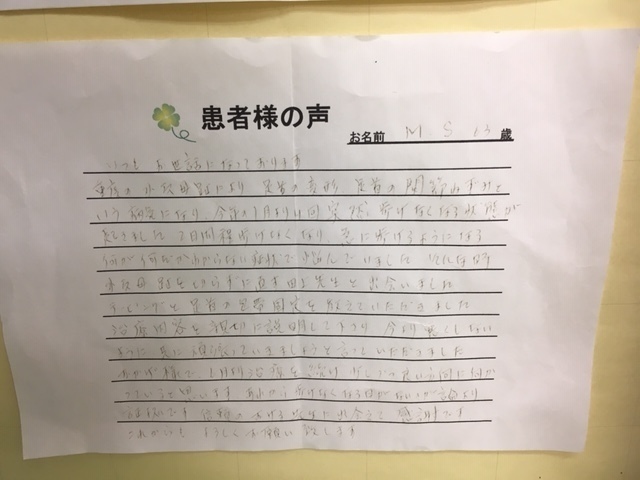 患者様の声
お名前 M S 13 歳
いつもお世話になっております
重度の外反母趾により 足首の変形 足首の関節ねずみと
いう病気になり、今年の1月より 突然 歩けなくなる状態が
2日間程歩けなくなり 急に歩けるようになる
何が何だかわからない症状で悩んでいました そんな時
外反母趾を切らずに直す 先生と出会いました
テーピングと足首の包帯固定を教えていただきました
治療内容を親切に説明して下さり 今より悪くしない
ように 共に頑張っていきましょうと言っていただきました
おかげ様で 1月より治療を続け 少しづつ良い方向に向か
っていると思います あれから歩けなくなる様がないのが何より
です 信頼のおける先生に出会えて 感謝です
これからも よろしくお願い致します